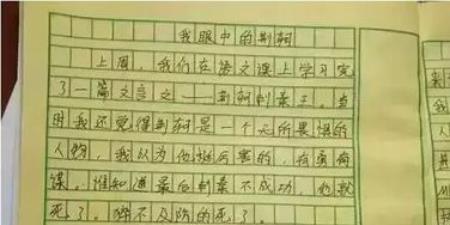 我眼中的荆轲
上周，我们在语文课上学习完
了一篇文言文——荆轲刺秦王。当
时我还觉得荆轲是一个无所畏惧的
人物，我认为他挺厉害的，有勇有
谋。谁知道最后刺秦不成功，他就
死了。猝不及防的死了。